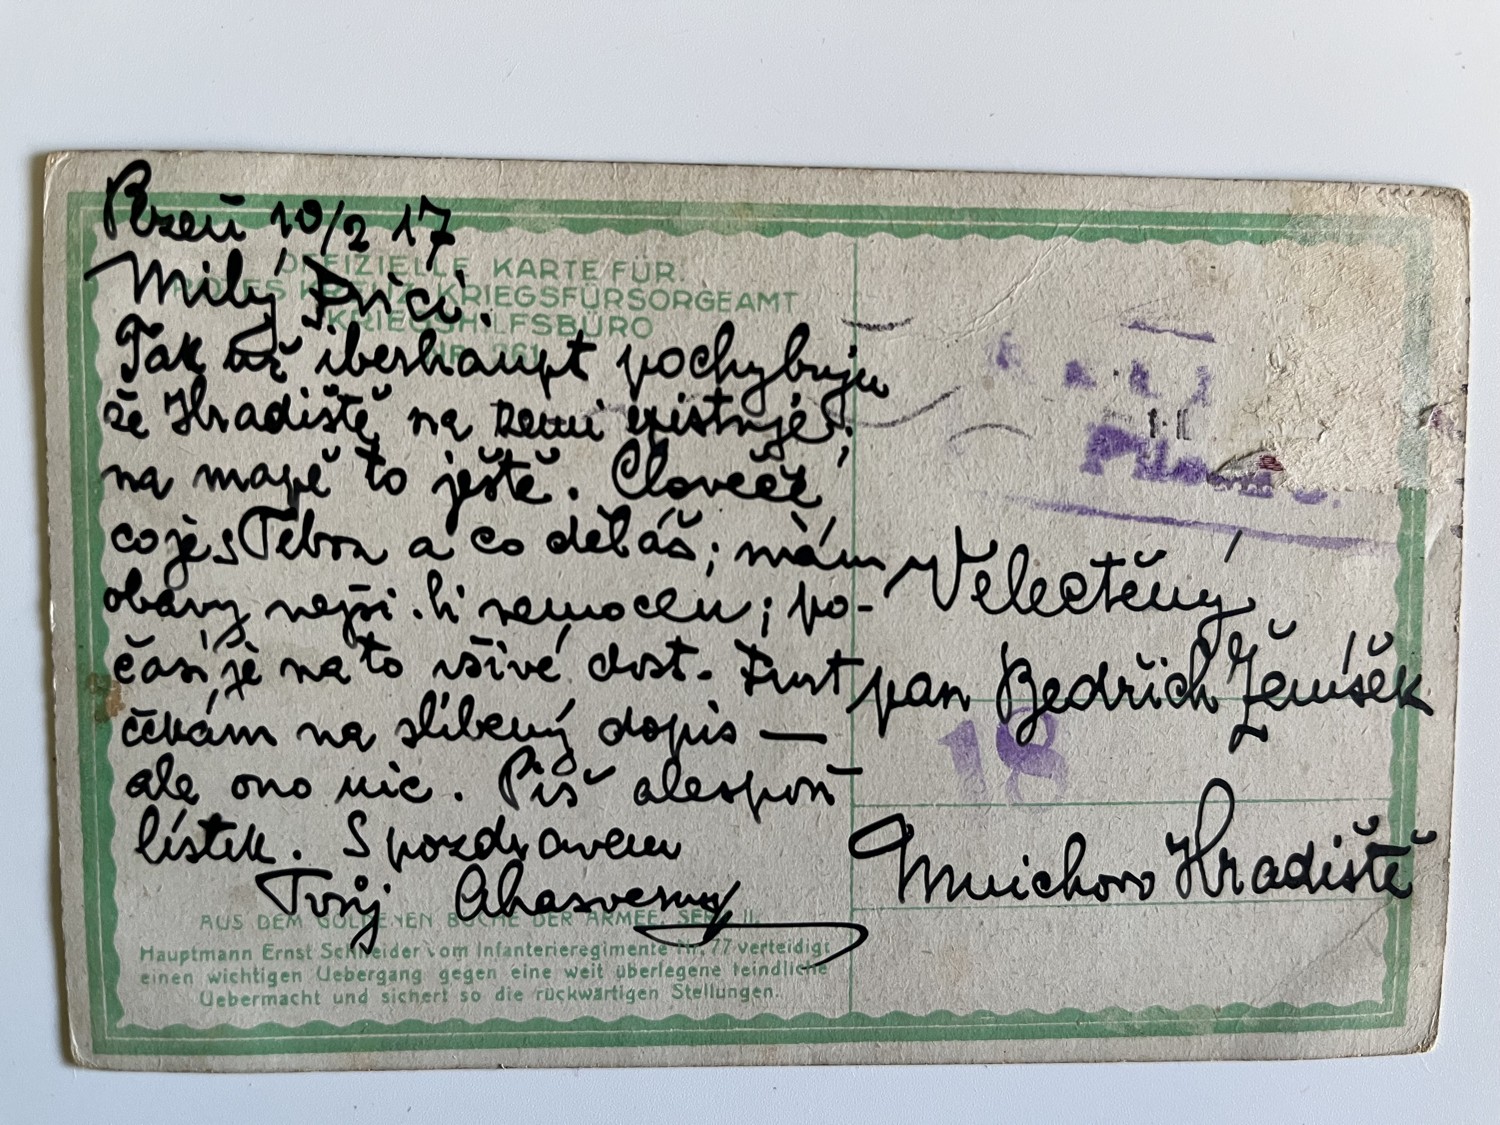 Plzeň 10/2 17
Milý Frici.
Tak už iberhaupt pochybuju
že Hradiště na zemi existuje;
na mapě to ještě. Clovečě,
co je s Tebou a co děláš; mám
obavy nejsi-li nemocen; po-
časí je na to všivé dost. Furt
čekám na slíbený dopis —
ale ono nic. Piš alespoň
lístek. S pozdravem
Tvůj Ahasverus
OFFIZIELLE KARTE FÜR:
ROTES KREUZ, KRIEGSFÜRSORGEAMT
KRIEGSHILFSBÜRO
Nr. 261
AUS DEM GOLDENEN BUCHE DER ARMEE, SERIE II.
Hauptmann Ernst Schneider vom Infanterieregimente Nr. 77 verteidigt
einen wichtigen Uebergang gegen eine weit überlegene feindliche
Uebermacht und sichert so die rückwärtigen Stellungen.
Velectěný
pan Bedřich Ženíšek
18
Mnichovo Hradiště